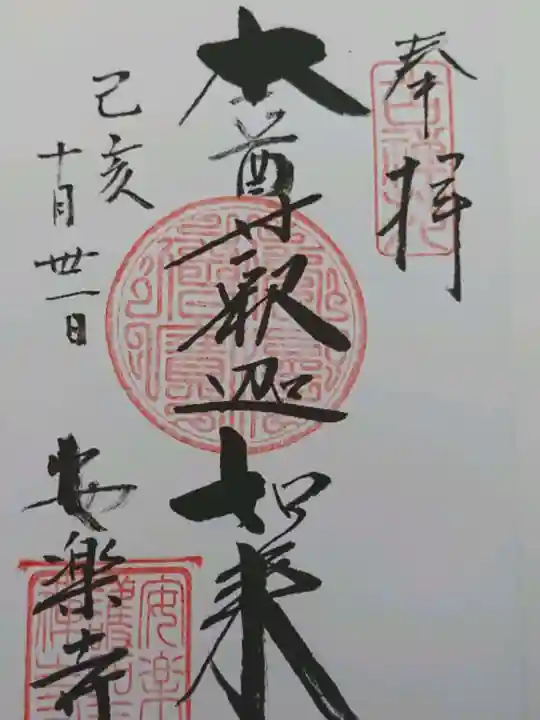 奉拝
本尊釈迦如来
己亥
十月卅一日
安楽寺